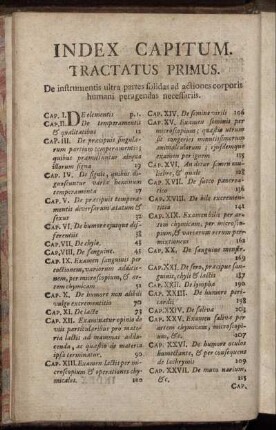 INDEX CAPITUM.
TRACTATUS PRIMUS.
De instrumentis ultra partes solidas ad actiones corporis
humani peragendas necessariis.
CAP. I. DE elementis p. 1.
CAP. II. De temperamentis
& qualitatibus 11
CAP. III. De præcipuis singula-
rum partium temperamentis;
quibus præmittuntur aliqua
illorum signa 19
CAP. IV. De signis, quibus di-
gnoscuntur varia hominum
temperamenta 27
CAP. V. De præcipuis tempera-
mentis diversarum ætatum &
sexus 32
CAP. VI. De humore ejusque dif-
ferentiis 38
CAP. VII. De chylo. 41
CAP. VIII. De sanguine. 45
CAP. IX. Examen sanguinis per
coctionem, variorum additio-
nem, per microscopium, & ar-
tem chymicam 51
CAP. X. De humore non alibili
vulgo excrementitio
CAP. XI. De lacte 73
CAP. XII. Examinatur opinio
vis particularibus pro mate-
ria lactis ad mammas addu-
cenda, ac quædam de materia
ipsa terminatur. 90
CAP. XIII. Examen lactis per mi-
croscopium & operationes chy-
micales.
CAP. XIV. De semine virili 106
CAP. XV. Examen seminis per
microscopium;
sit congeries
animalculorum; ejusdemque
examen per ignem 115
CAP. XVI. An detur semen mu-
liebre, & quale
CAP. XVII. De succo pancrea-
tico 136
CAP. XVIII. De bile
CAP. XIX. Examen bilis per ar-
tem chymicam, per microsco-
pium, & variarum rerum per-
mixtionem 162
CAP. XX. De sanguine menstruo
169
CAP. XXI. De sero, præcipue san-
guinis, chyli & lactis
CAP. XXII. De lympha 190
CAP. XXIII. De humore peri-
cardii 198
CAP. XXIV. De saliva 203
CAP. XXV. Examen salivæ per
artem chymicam, microscopi-
um, &c. 207
CAP. XXVI. De humore oculos
humectante, & per consequens
de lachrymis 209
CAP. XXVII. De muco narium,
&c. 215
CAP.